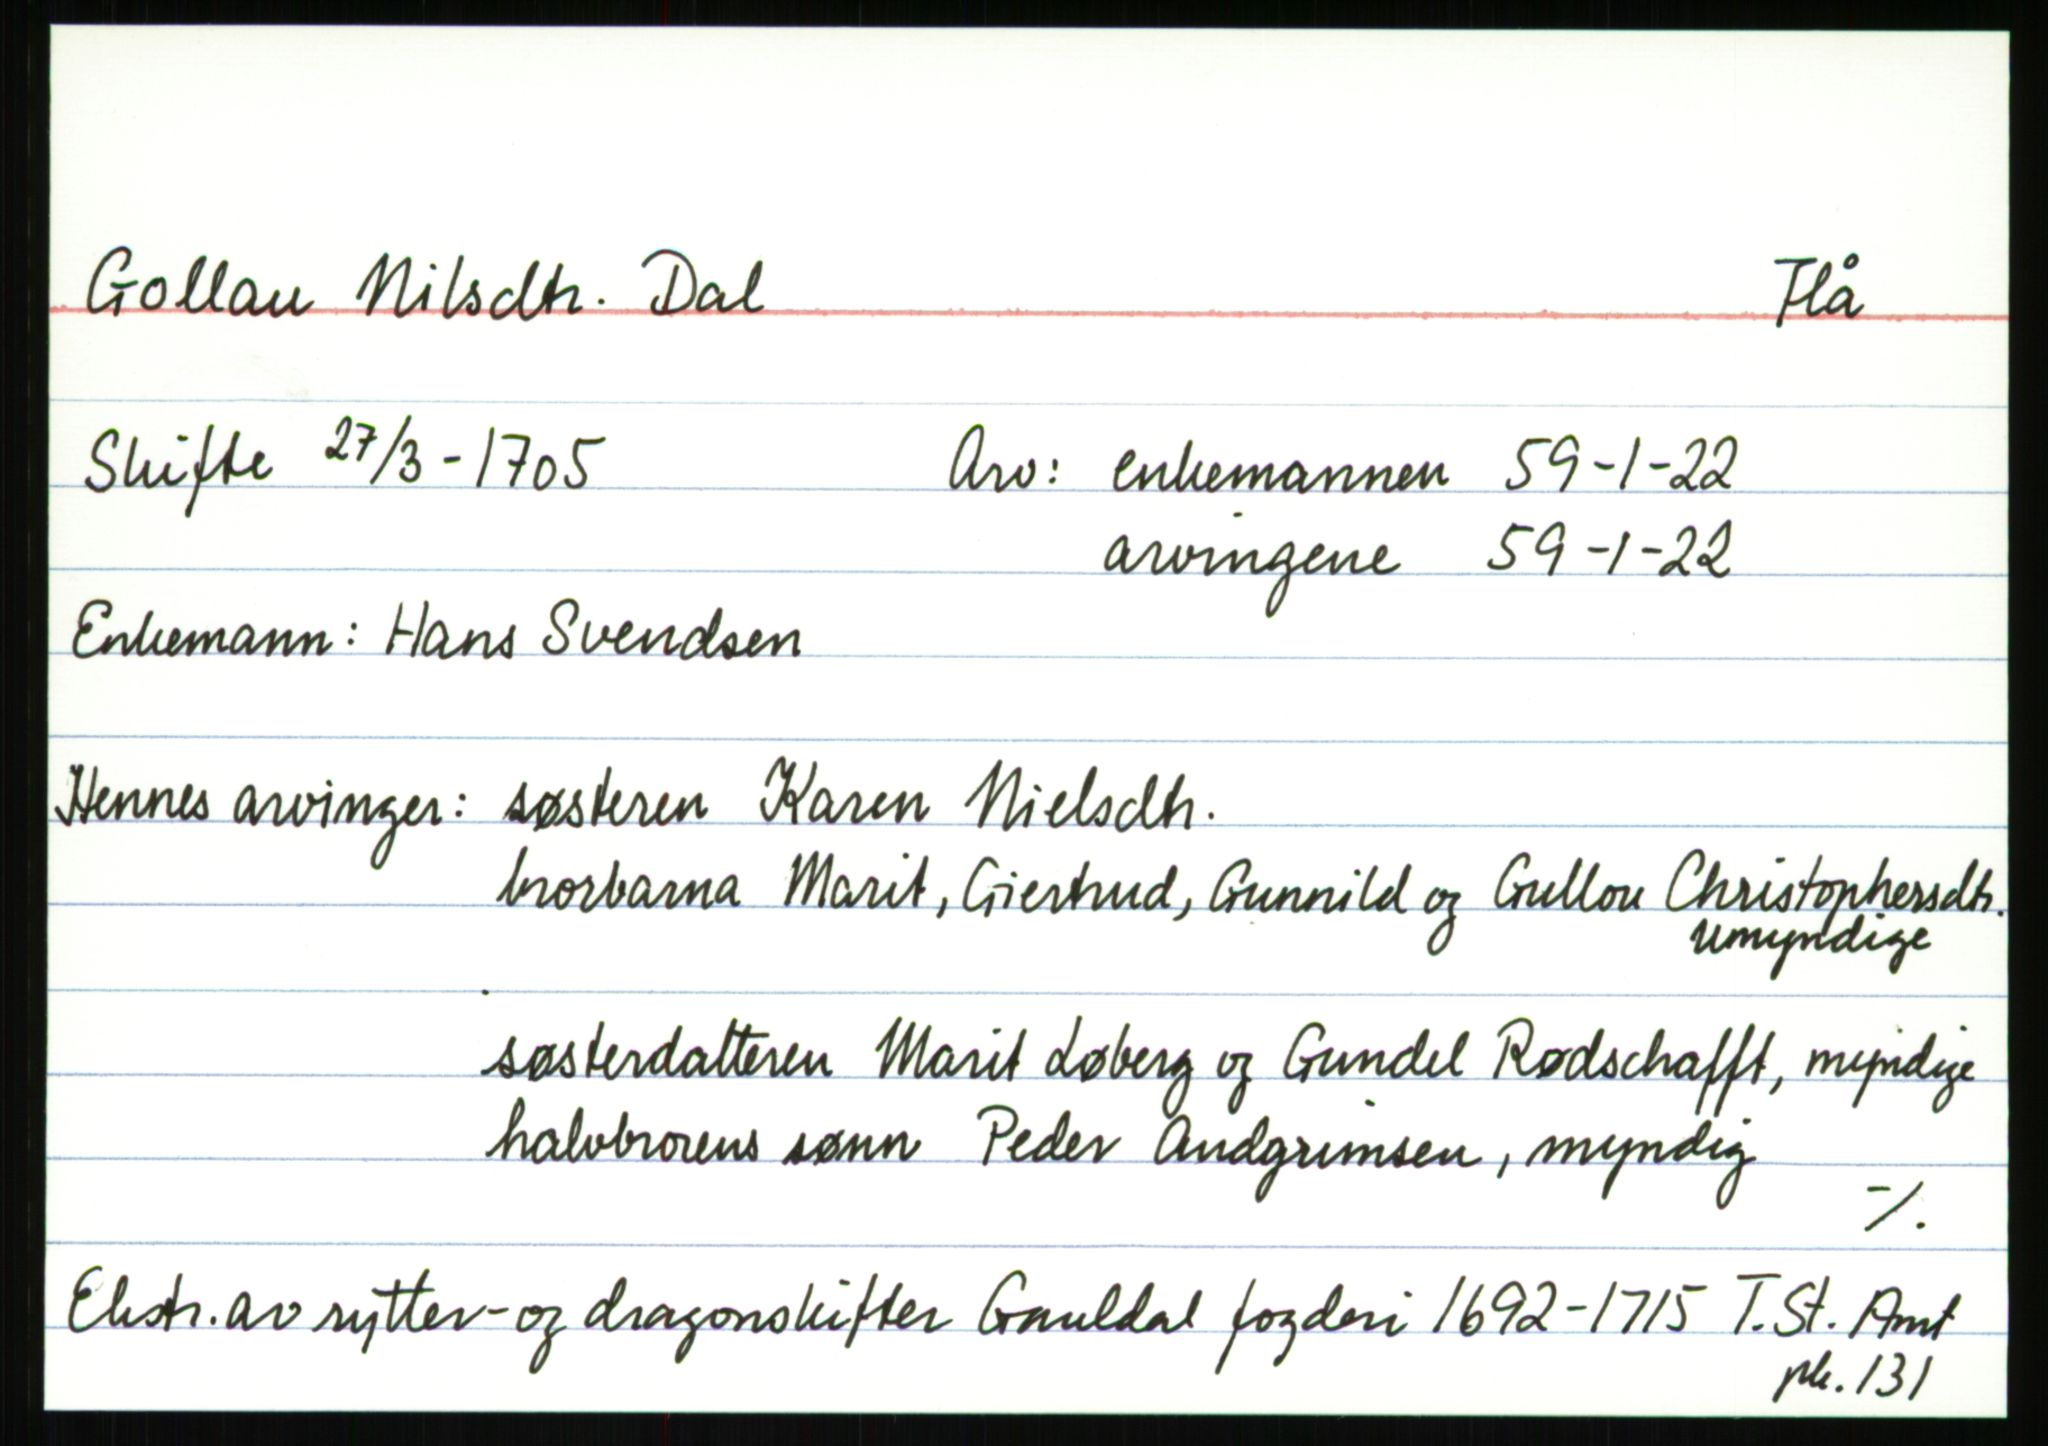 Gollau Nilsdtr. Dal Flå
Skifte 27/3-1705 Arv: enkemannen 59-1-22
arvingene 59-1-22
Enkemann: Hans Svendsen
Hennes arvinger: søsteren Karen Nielsdtr.
brorbarna Marit, Giertrud, Gunnild og Gullou Christophersdtr.
umyndige
søsterdatteren Marit Løberg og Gundel Rødschafft, myndige
halvbrorens sønn Peder Andgrimsen, myndig
-/.
Ekstr. av rytter- og dragonskifter Gauldal fogderi 1692-1715 T. St. Amt
pk. 131